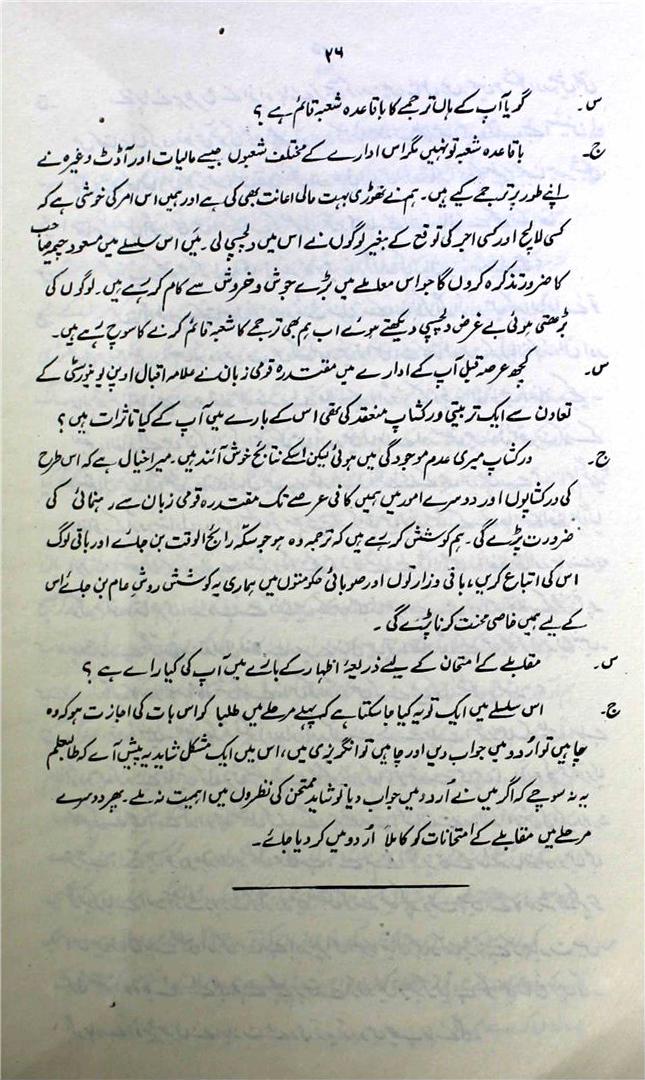 ۲۶
س۔ گویا آپ کے ہاں ترجمے کا باقاعدہ شعبہ قائم ہے ؟
ج۔ باقاعدہ شعبہ تو نہیں مگر اس ادارے کے مختلف شعبوں جیسے مالیات اور آڈٹ وغیرہ نے
اپنے طور پر ترجمے کیے ہیں۔ ہم نے تھوڑی بہت مالی اعانت بھی کی ہے اور ہمیں اس امر کی خوشی ہے کہ
کسی لالچ اور کسی اجر کی توقع کے بغیر لوگوں نے اس میں دلچسپی لی۔ میں اس سلسلے میں مسعود چیمہ صاحب
کا ضرور تذکرہ کروں گا جو اس معاملے میں بڑے جوش و خروش سے کام کر رہے ہیں۔ لوگوں کی
بڑھتی ہوئی بے غرض دلچسپی دیکھتے ہوئے اب ہم بھی ترجمے کا شعبہ قائم کرنے کا سوچ رہے ہیں۔
س۔ کچھ عرصہ قبل آپ کے ادارے میں مقتدرہ قومی زبان نے علامہ اقبال اوپن یونیورسٹی کے
تعاون سے ایک تربیتی ورکشاپ منعقد کی تھی اس کے بارے میں آپ کے کیا تاثرات ہیں ؟
ج۔ ورکشاپ میری عدم موجودگی میں ہوئی لیکن اسکے نتائج خوش آئند ہیں۔ میرا خیال ہے کہ اس طرح
کی ورکشاپوں اور دوسرے امور میں ہمیں کافی عرصے تک مقتدرہ قومی زبان سے رہنمائی کی
ضرورت پڑے گی۔ ہم کوشش کر رہے ہیں کہ ترجمہ وہ ہو جو سکہ رائج الوقت بن جائے اور باقی لوگ
اس کی اتباع کریں، باقی وزارتوں اور صوبائی حکومتوں میں ہماری یہ کوشش روشِ عام بن جائے اس
کے لیے ہمیں خاصی محنت کرنا پڑے گی ۔
س۔ مقابلے کے امتحان کے لیے ذریعۂ اظہار کے بارے میں آپ کی کیا رائے ہے ؟
ج۔ اس سلسلے میں ایک تو یہ کیا جا سکتا ہے کہ پہلے مرحلے میں طلبا کو اس بات کی اجازت ہو کہ وہ
چاہیں تو اُردو میں جواب دیں اور چاہیں تو انگریزی میں، اس میں ایک مشکل شاید یہ پیش آئے کہ طالبعلم
یہ نہ سوچے کہ اگر میں نے اُردو میں جواب دیا تو شاید ممتحن کی نظروں میں اہمیت نہ ملے۔ پھر دوسرے
مرحلے میں مقابلے کے امتحانات کو کاملاً اُردو میں کر دیا جائے۔